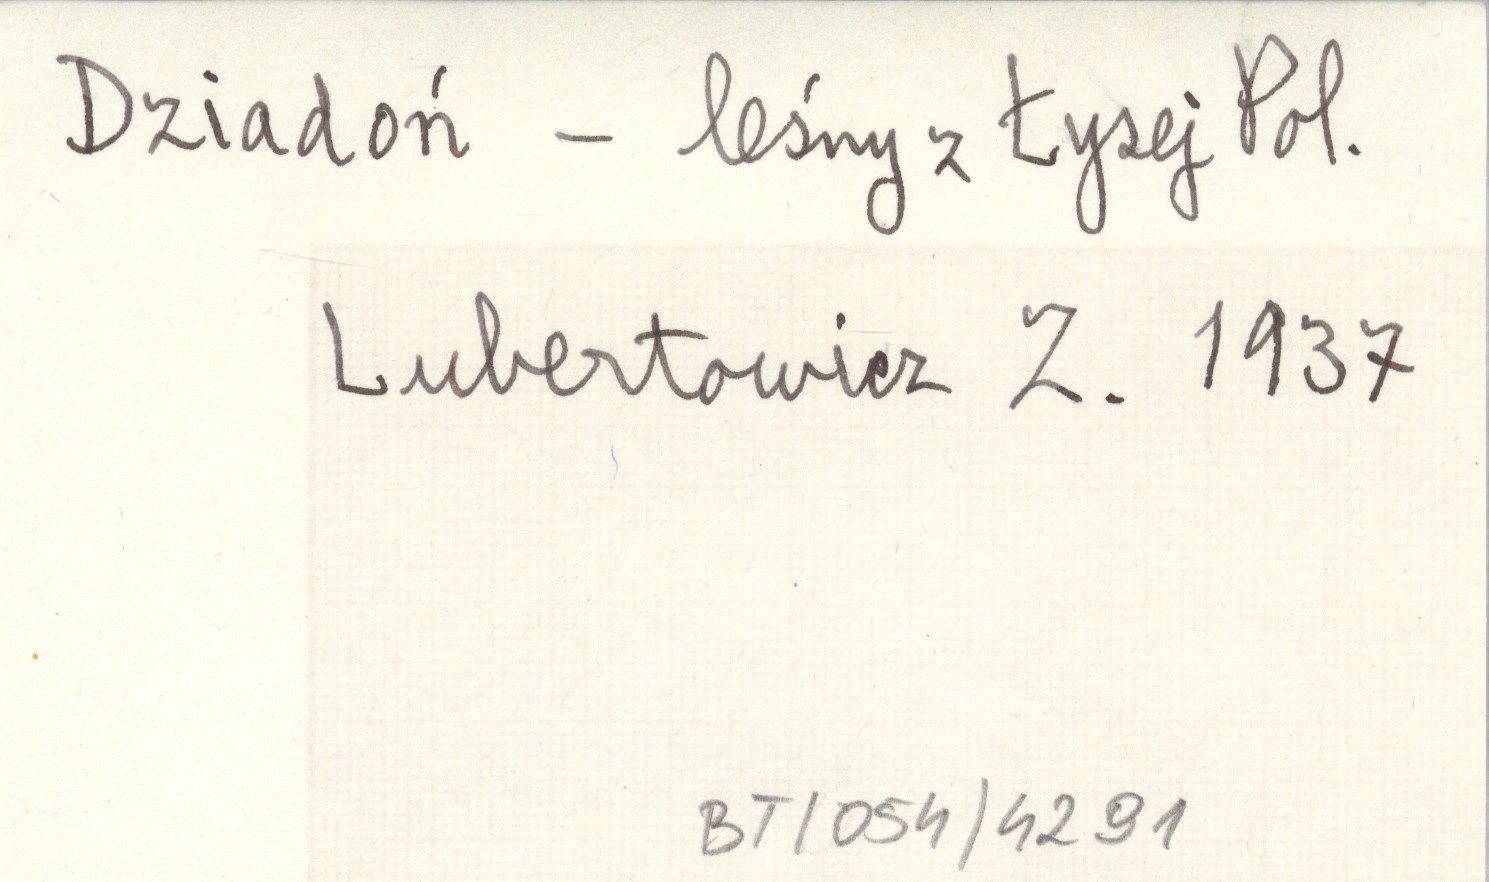 Dziadoń - leśny z Łysej Pol.
Lubertowicz Z. 1937
BT/054/4291